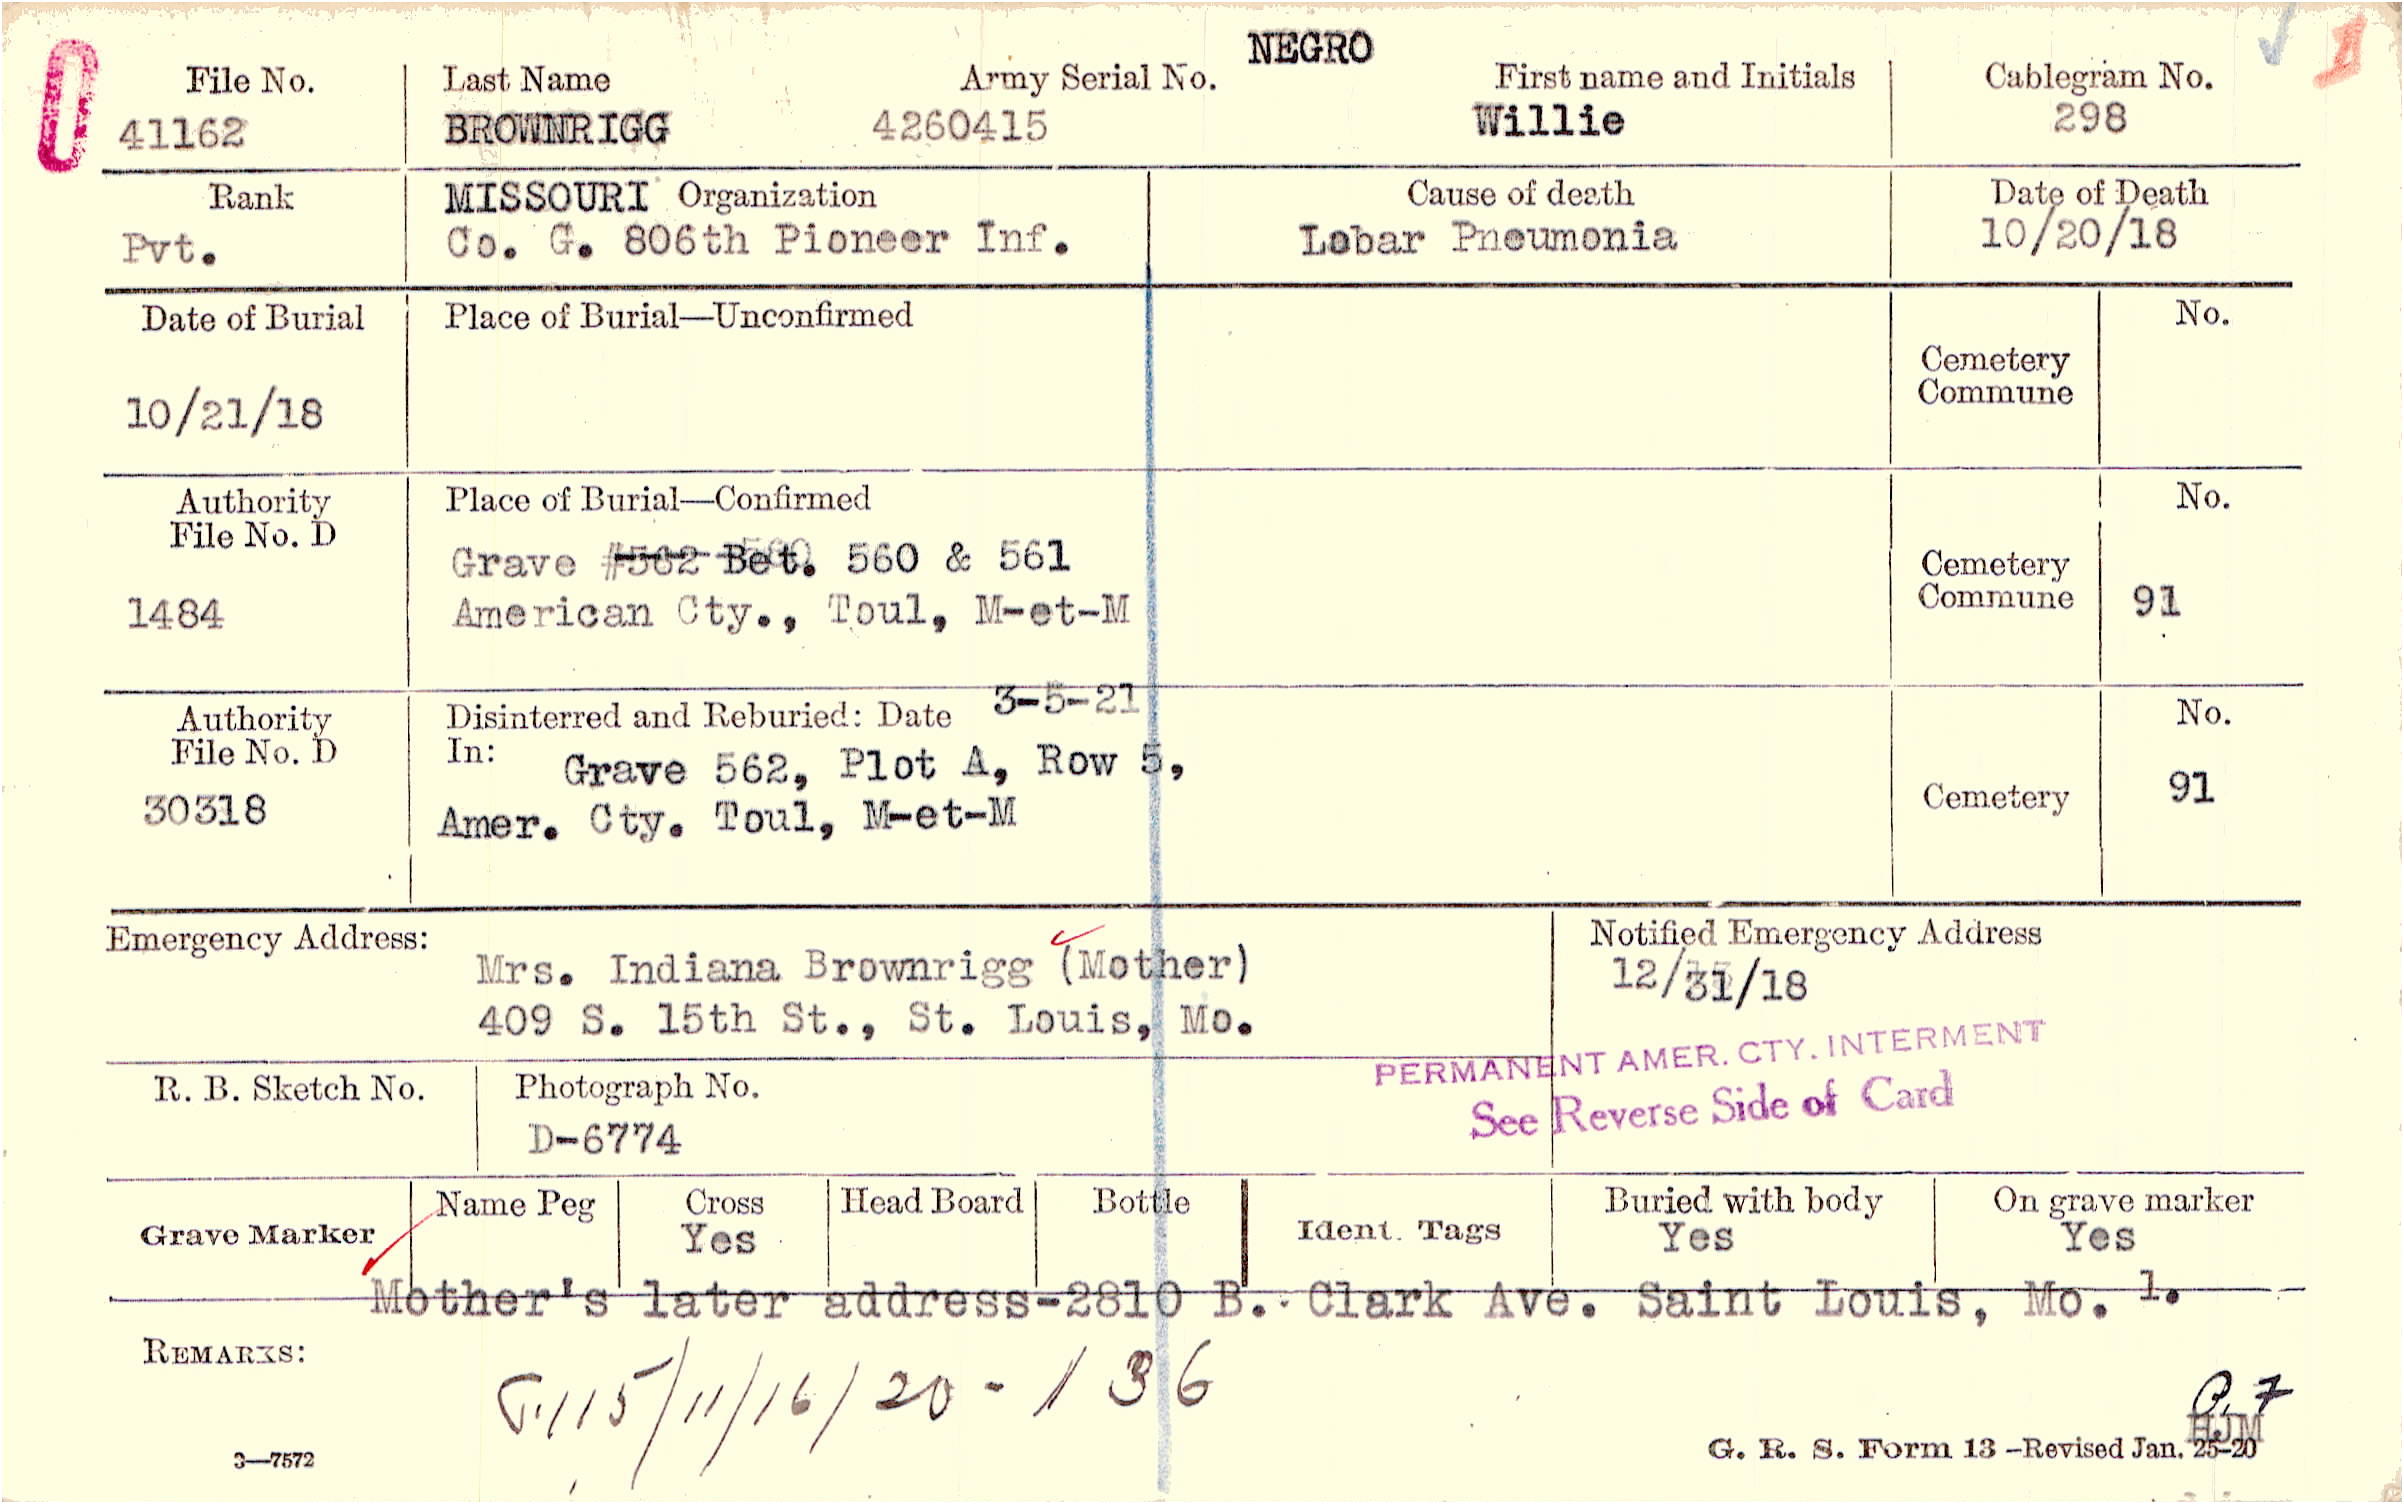 NEGRO
1
File No.
Last Name
Army Serial No.
First name and Initials
Cablegram No.
41162
BROWNRIGG
4260415
Willie
298
Rank
MISSOURI Organization
Cause of death
Date of Death
Pvt.
Co. G. 806th Pioneer Inf.
Lobar Pneumonia
10/20/18
Date of Burial
Place of Burial—Unconfirmed
No.
Cemetery
Commune
10/21/18
Authority
File No. D
Place of Burial—Confirmed
No.
Grave #562 Bet. 560 & 561
American Cty., Toul, M-et-M
1484
Cemetery
Commune
91
Authority
File No. D
Disinterred and Reburied: Date 3-5-21
No.
In: Grave 562, Plot A, Row 5,
Amer. Cty. Toul, M-et-M
30318
Cemetery
91
Emergency Address:
Mrs. Indiana Brownrigg (Mother)
409 S. 15th St., St. Louis, Mo.
Notified Emergency Address
12/31/18
PERMANENT AMER. CTY. INTERMENT
See Reverse Side of Card
R. B. Sketch No.
Photograph No.
D-6774
Grave Marker
Name Peg
Cross
Yes
Head Board
Bottle
Ident. Tags
Buried with body
Yes
On grave marker
Yes
Mother's later address-2810 B. Clark Ave. Saint Louis, Mo. 1.
REMARKS:
115/11/16/20-136
HJM
3—7572
G. R. S. Form 13 –Revised Jan. 25–20